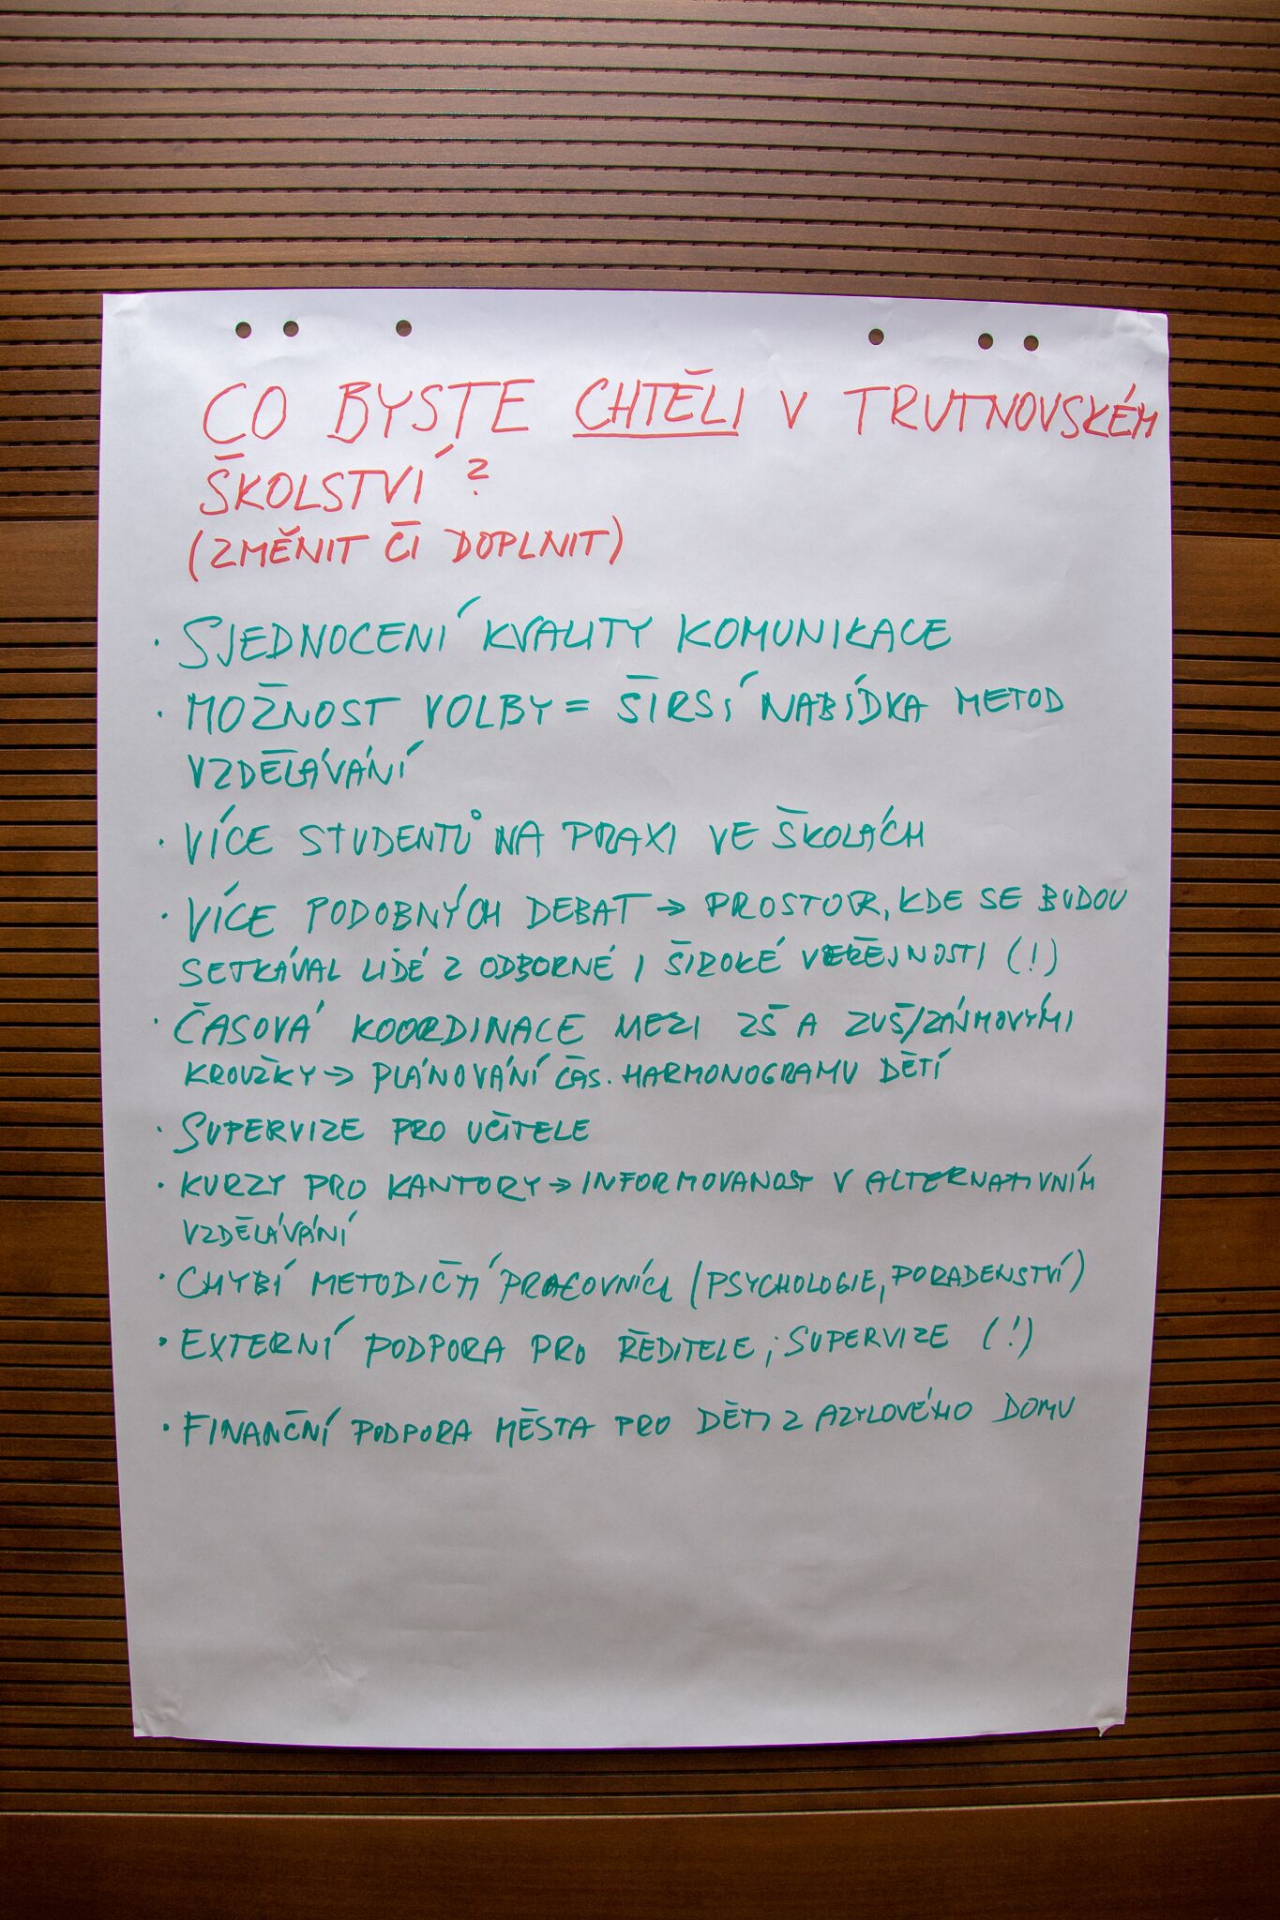 CO BYSTE CHTĚLI V TRUTNOVSKÉM
ŠKOLSTVÍ?
(ZMĚNIT ČI DOPLNIT)
· SJEDNOCENÍ KVALITY KOMUNIKACE
· MOŽNOST VOLBY = ŠIRSÍ NABÍDKA METOD
VZDĚLÁVÁNÍ
· VÍCE STUDENTŮ NA PRAXI VE ŠKOLÁCH
· VÍCE PODOBNÝCH DEBAT → PROSTOR, KDE SE BUDOU
SETKÁVAL LIDÉ Z ODBORNÉ I ŠIROKÉ VEŘEJNOSTI (!)
· ČASOVÁ KOORDINACE MEZI ZŠ A ZUŠ/ZÁJMOVÝMI
KROUŽKY → PLÁNOVÁNÍ ČAS. HARMONOGRAMU DĚTÍ
· SUPERVIZE PRO UČITELE
· KURZY PRO KANTORY → INFORMOVANOST V ALTERNATIVNÍM
VZDĚLÁVÁNÍ
· CHYBÍ METODIČTÍ PRACOVNÍCI (PSYCHOLOGIE, PORADENSTVÍ)
· EXTERNÍ PODPORA PRO ŘEDITELE; SUPERVIZE (!)
· FINANČNÍ PODPORA MĚSTA PRO DĚTI Z AZYLOVÉHO DOMU